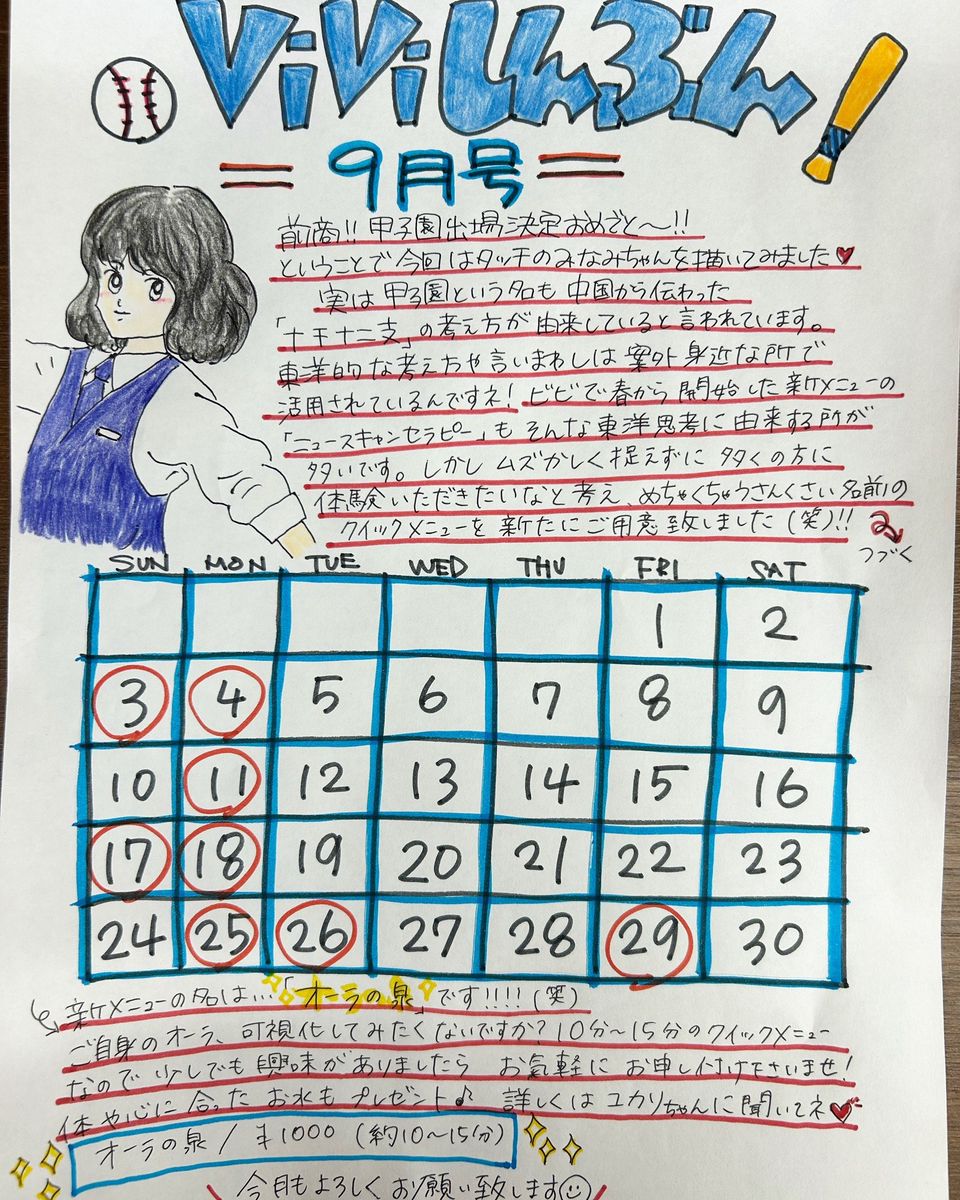 ViViしんぶん!
= 9月号 =
前商!! 甲子園出場決定おめでと〜!!
ということで今回はタッチのみなみちゃんを描いてみました♥
実は甲子園という名も中国から伝わった
「十干十二支」の考え方が由来していると言われています。
東洋的な考え方や言いまわしは案外身近な所で
活用されているんですネ! ビビで春から開始した新メニューの
「ニュースキャンセラピー」もそんな東洋思考に由来する所が
多いです。しかしムズかしく捉えずに多くの方に
体験いただきたいなと考え、めちゃくちゃうさんくさい名前の
クイックメニューを新たにご用意致しました(笑)!!
つづく
SUN MON TUE WED THU FRI SAT
1 2
3 4 5 6 7 8 9
10 11 12 13 14 15 16
17 18 19 20 21 22 23
24 25 26 27 28 29 30
新メニューの名は…「オーラの泉」です!!!!(笑)
ご自身のオーラ、可視化してみたくないですか?10分〜15分のクイックメニュー
なので少しでも興味がありましたら お気軽にお申し付け下さいませ!
体や心に合ったお水もプレゼント♪ 詳しくはユカリちゃんに聞いてネ♥
オーラの泉 / ¥1000 (約10〜15分)
\ 今月もよろしくお願い致します☺ /